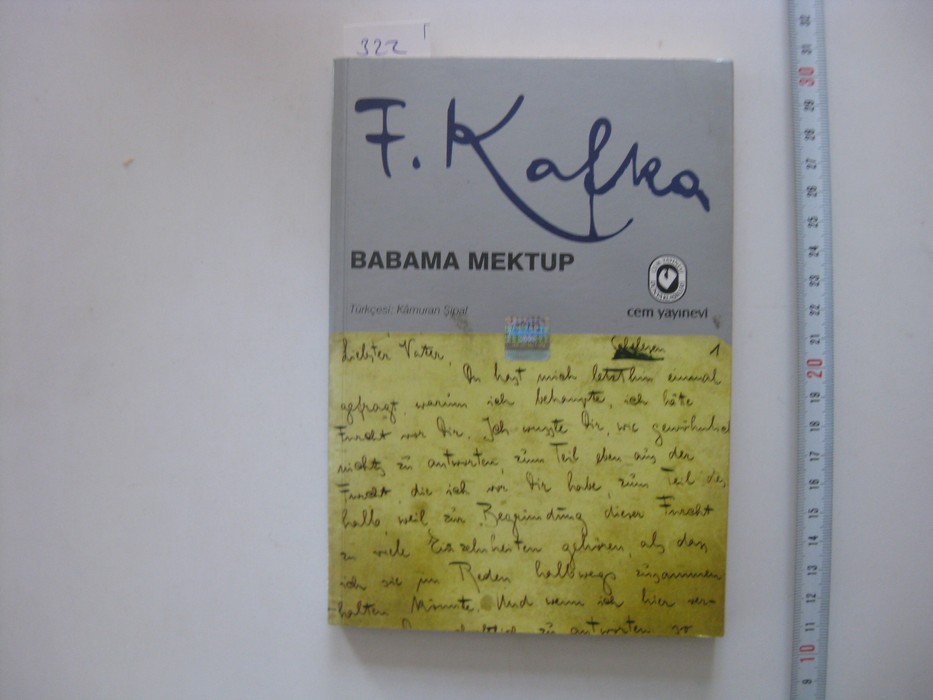 322
F. Kafka
BABAMA MEKTUP
cem yayınevi
Türkçesi: Kâmuran Şipal
Liebster Vater,
1
Du hast mich letzthin einmal
gefragt, warum ich behaupte, ich hätte
Furcht vor Dir. Ich wusste Dir, wie gewöhnlich
nichts zu antworten, zum Teil eben aus der
Furcht, die ich vor Dir habe, zum Teil des
halb weil zur Begründung dieser Furcht
zu viele Einzelnheiten gehören, als dass
ich sie im Reden halbwegs zusammen
halten könnte. Und wenn ich hier ver-
zu antworten so
32
31
30
29
28
27
26
25
24
23
22
21
20
19
18
17
16
15
14
13
12
11
10
9